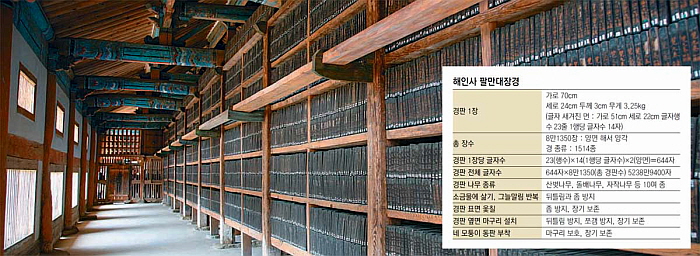 해인사 팔만대장경
경판 1장
가로 70cm
세로 24cm 두께 3cm 무게 3.25kg
(글자 새겨진 면 : 가로 51cm 세로 22cm 글자행
수 23줄 1행당 글자수 14자)
총 장수
8만1350장 : 양면 해서 양각
경 종류 : 1514종
경판 1장당 글자수 23(행수)×14(1행당 글자수)×2(양면)=644자
경판 전체 글자수 644자×8만1350(총 경판수) 5238만9400자
경판 나무 종류 산벚나무, 돌배나무, 자작나무 등 10여 종
소금물에 삶기, 그늘말림 반복 뒤틀림과 좀 방지
경판 표면 옻칠 좀 방지, 장기 보존
경판 옆면 마구리 설치 뒤틀림 방지, 쪼갬 방지, 장기 보존
네 모퉁이 동판 부착 마구리 보호, 장기 보존